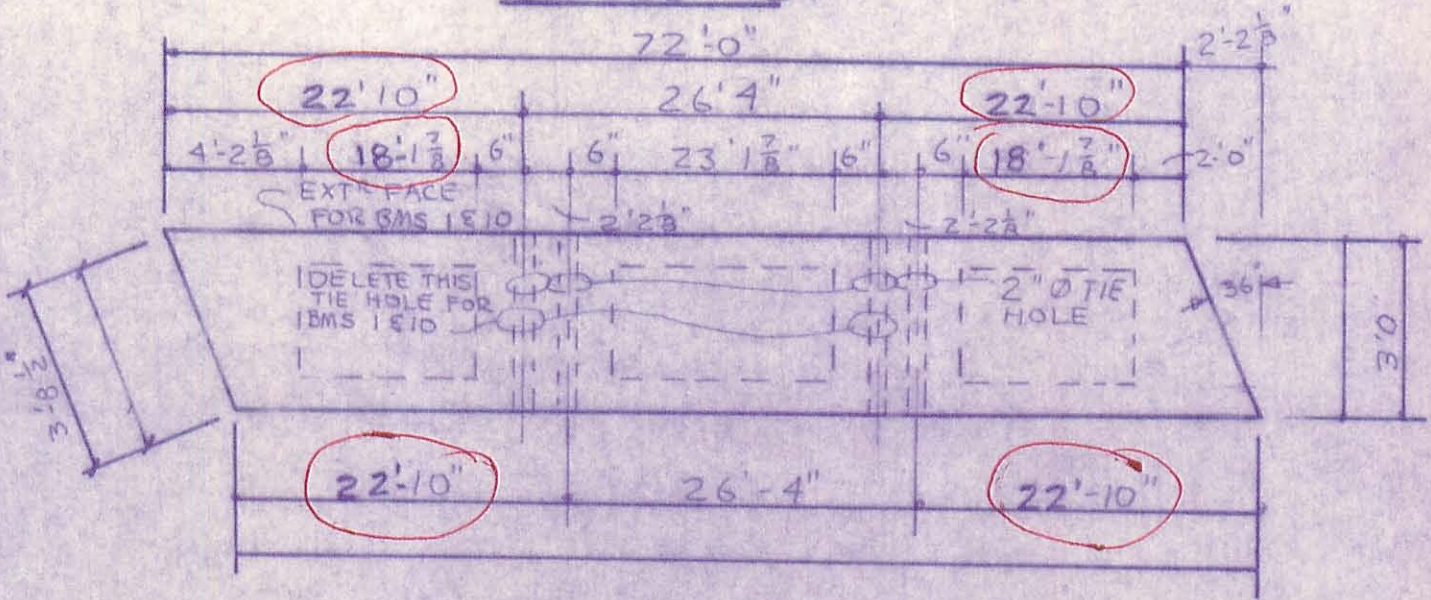 72'-0" 2'-2⅛"
22'10" 26'4" 22'-10"
4'-2⅛" 18'-1⅞" 6" 6" 23'1⅞" 6" 6" 18'-1⅞" 2'-0"
EXT. FACE
FOR BMS 1 & 10 2'2⅛" 2'-2⅛"
DELETE THIS
TIE HOLE FOR
BMS 1 & 10
2" Ø TIE
HOLE
36°
3'0"
3'-8½"
22'-10" 26'-4" 22'-10"